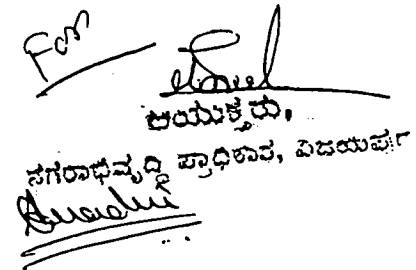 For
ಆಯುಕ್ತರು,
ನಗರಾಭಿವೃದ್ಧಿ ಪ್ರಾಧಿಕಾರ, ವಿಜಯಪುರ